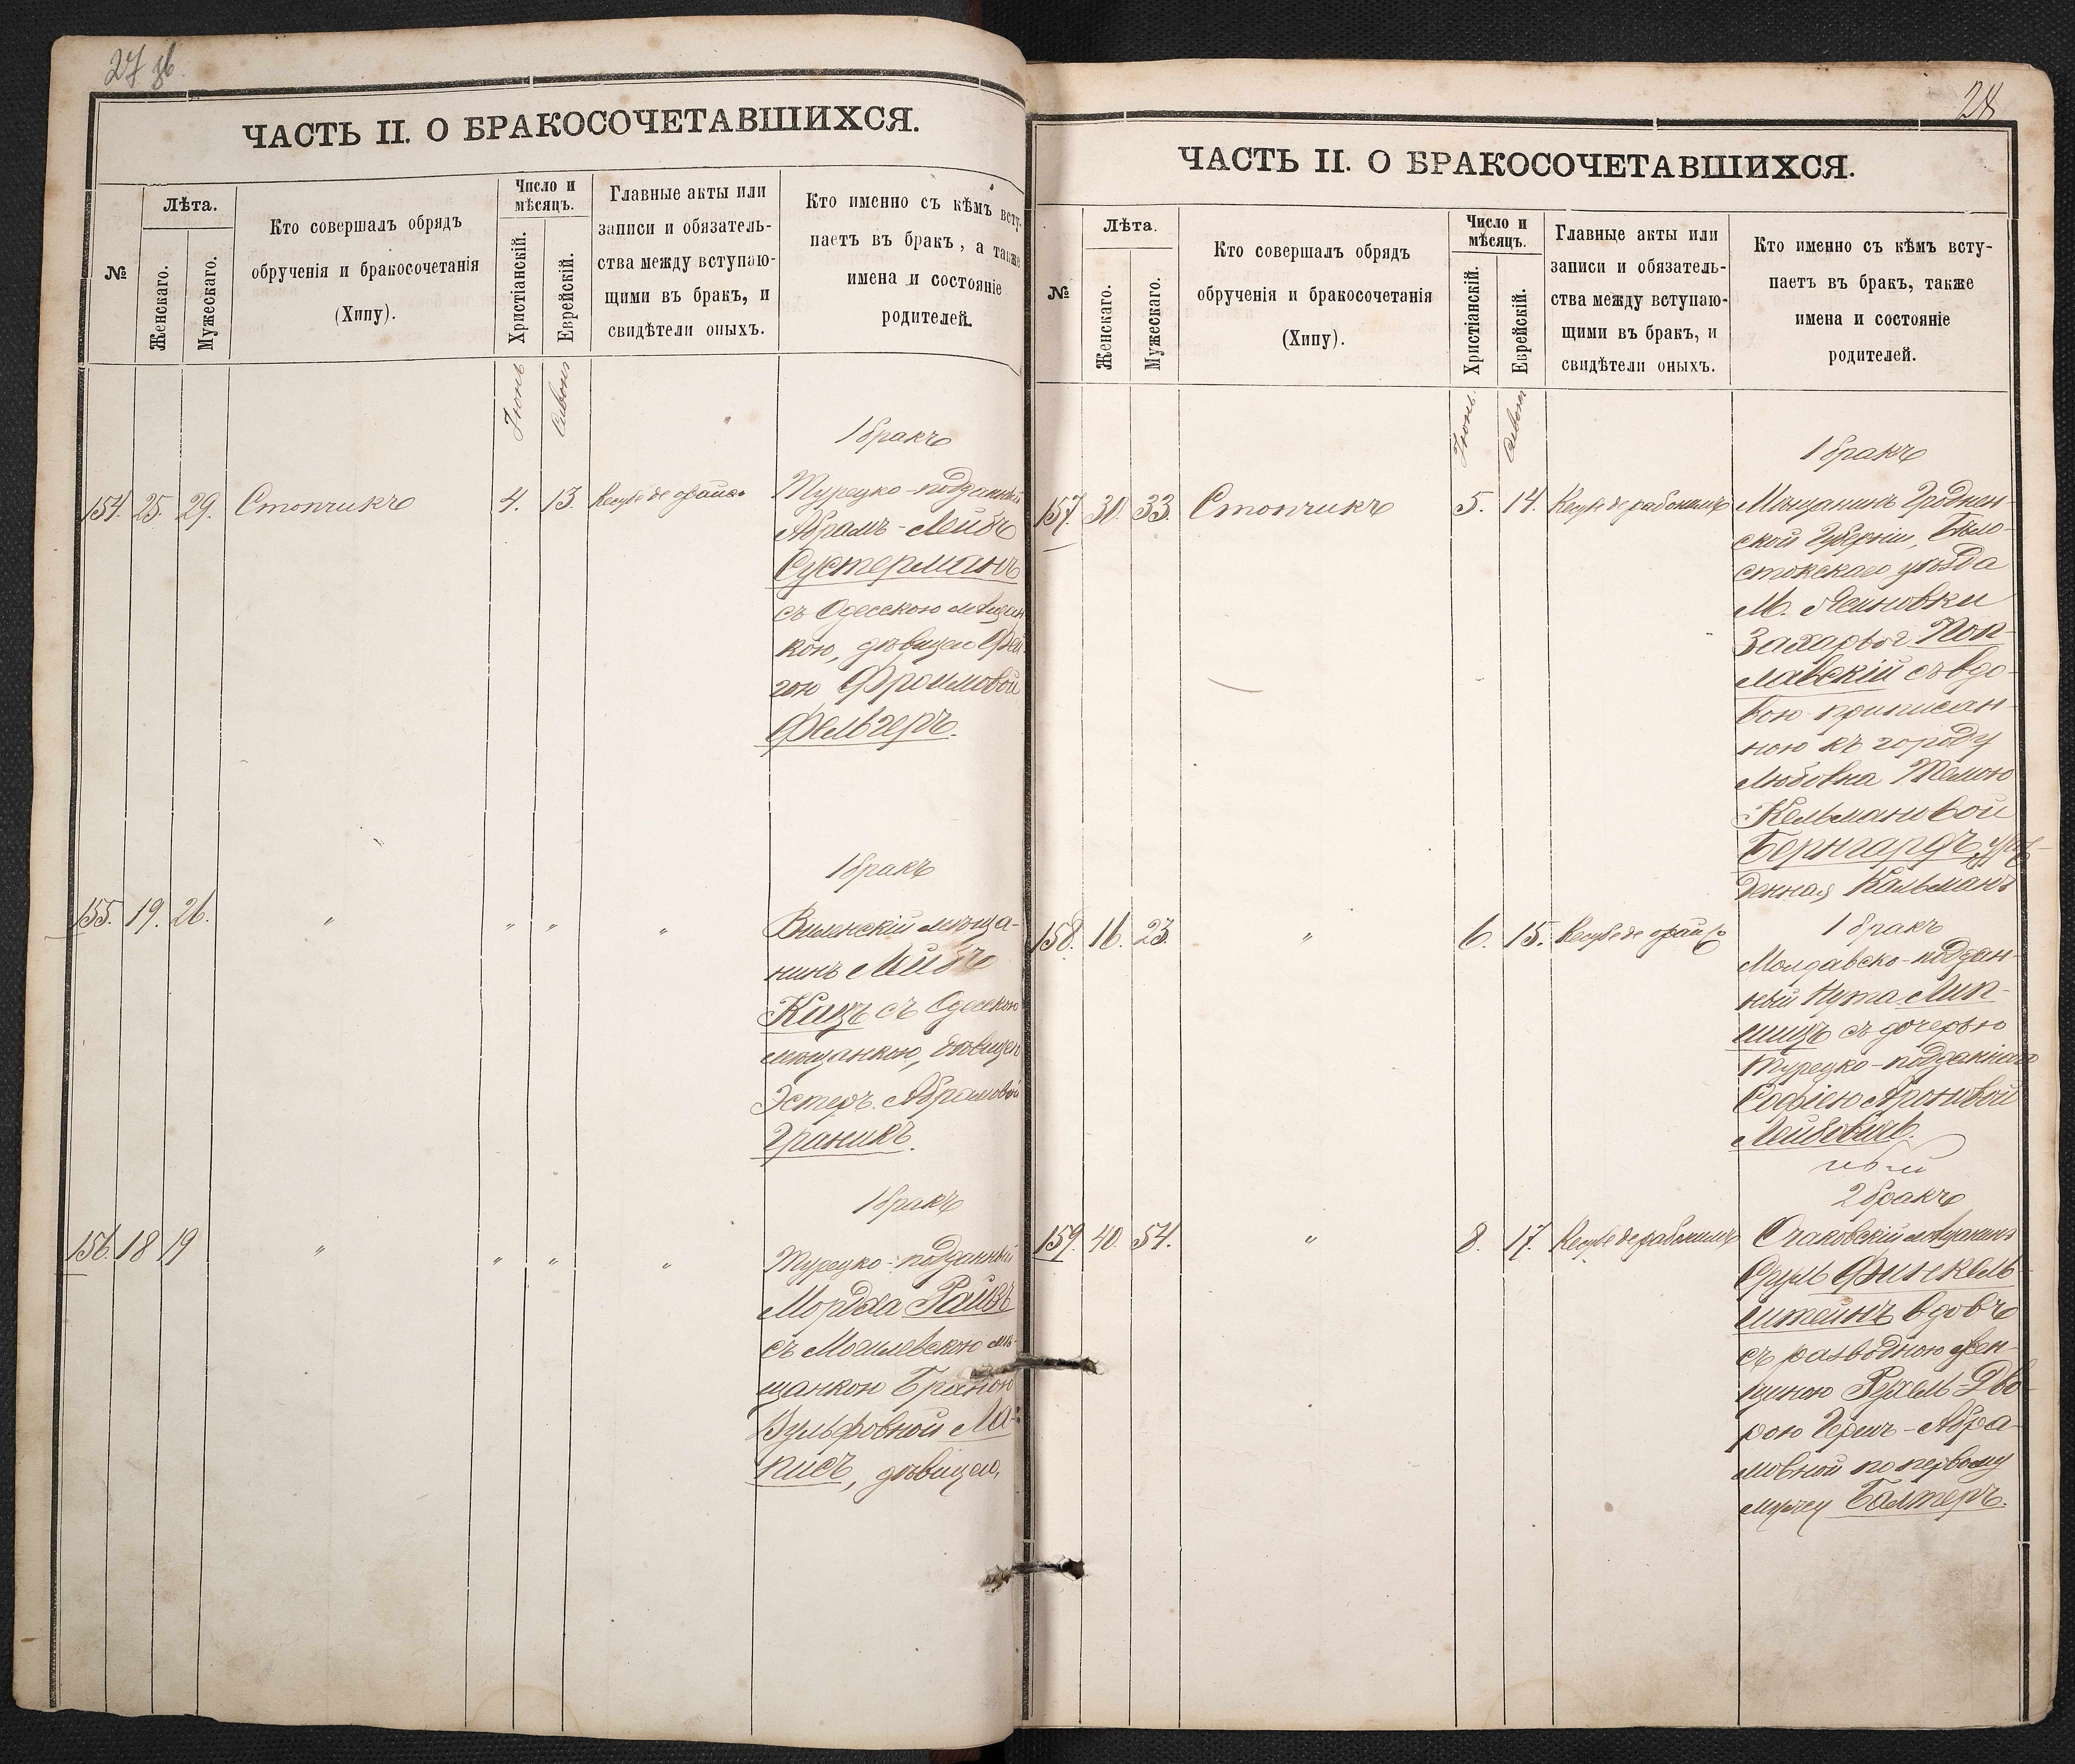 27 зв.
ЧАСТЬ II. О БРАКОСОЧЕТАВШИХСЯ.
№
Лѣта.
Женскаго.
Мужескаго.
Кто совершалъ обрядъ
обрученія и бракосочетанія
(Хипу).
Число и
мѣсяцъ.
Христіанскій.
Еврейскій.
Главные акты или
записи и обязатель-
ства между вступаю-
щими въ бракъ, и
свидѣтели оныхъ.
Кто именно съ кѣмъ всту-
паетъ въ бракъ, а также
имена и состояніе
родителей.
Іюнь
Сивонъ
1 бракъ
154. 25. 29. Стопчикъ 4. 13. Кесубе де
Турецко-подданный
Абрамъ-Лейбъ
Сустерманъ
съ Одесскою мѣщан
кою, дѣвицею Фей-
гою Фроимовой
Фельгеръ.
1 бракъ
155. 19. 26. " " " "
Виленскій мѣща-
нинъ Лейбъ
Кицъ съ Одесскою
мѣщанкою, дѣвицею
Эстеръ Абрамовой
Граникъ.
1 бракъ
156. 18 19 " " " "
Турецко-подданный
Мордха Райзъ
съ Могилевскою мѣ-
щанкою Браною
Вульфовной Ла-
писъ, дѣвицею,
28
ЧАСТЬ II. О БРАКОСОЧЕТАВШИХСЯ.
№
Лѣта.
Женскаго.
Мужескаго.
Кто совершалъ обрядъ
обрученія и бракосочетанія
(Хипу).
Число и
мѣсяцъ.
Христіанскій.
Еврейскій.
Главные акты или
записи и обязатель-
ства между вступаю-
щими въ бракъ, и
свидѣтели оныхъ.
Кто именно съ кѣмъ всту-
паетъ въ бракъ, также
имена и состояніе
родителей.
Іюнь
Сивонъ
1 бракъ
157. 30. 33. Стопчикъ 5. 14. Кесубе де рабонимъ
Мѣщанинъ Гроднен-
ской Губерніи, Бѣло-
стокскаго уѣзда
М. Ясиновки
Захарья Поп-
лавскій съ вдо-
вою приписан-
ною къ городу
Темою
Кельмановой
Бернгардъ
денная Кальманъ
1 бракъ
158. 16. 23. " 6. 15. Кесубе де
Молдавско-поддан-
ный Нута Лип-
шицъ съ дочерью
Турецко-подданнаго
Софіею Ароновой
Лейбовичъ.
2 бракъ
159. 40. 54. " 8. 17. Кесубе де рабонимъ
Очаковскій мѣщанинъ
Сруль Финкель-
штейнъ вдовъ
съ разводною жен-
щиною Рухель-Дво-
рою Гершъ-Абра-
мовной по первому
мужу Балтеръ.